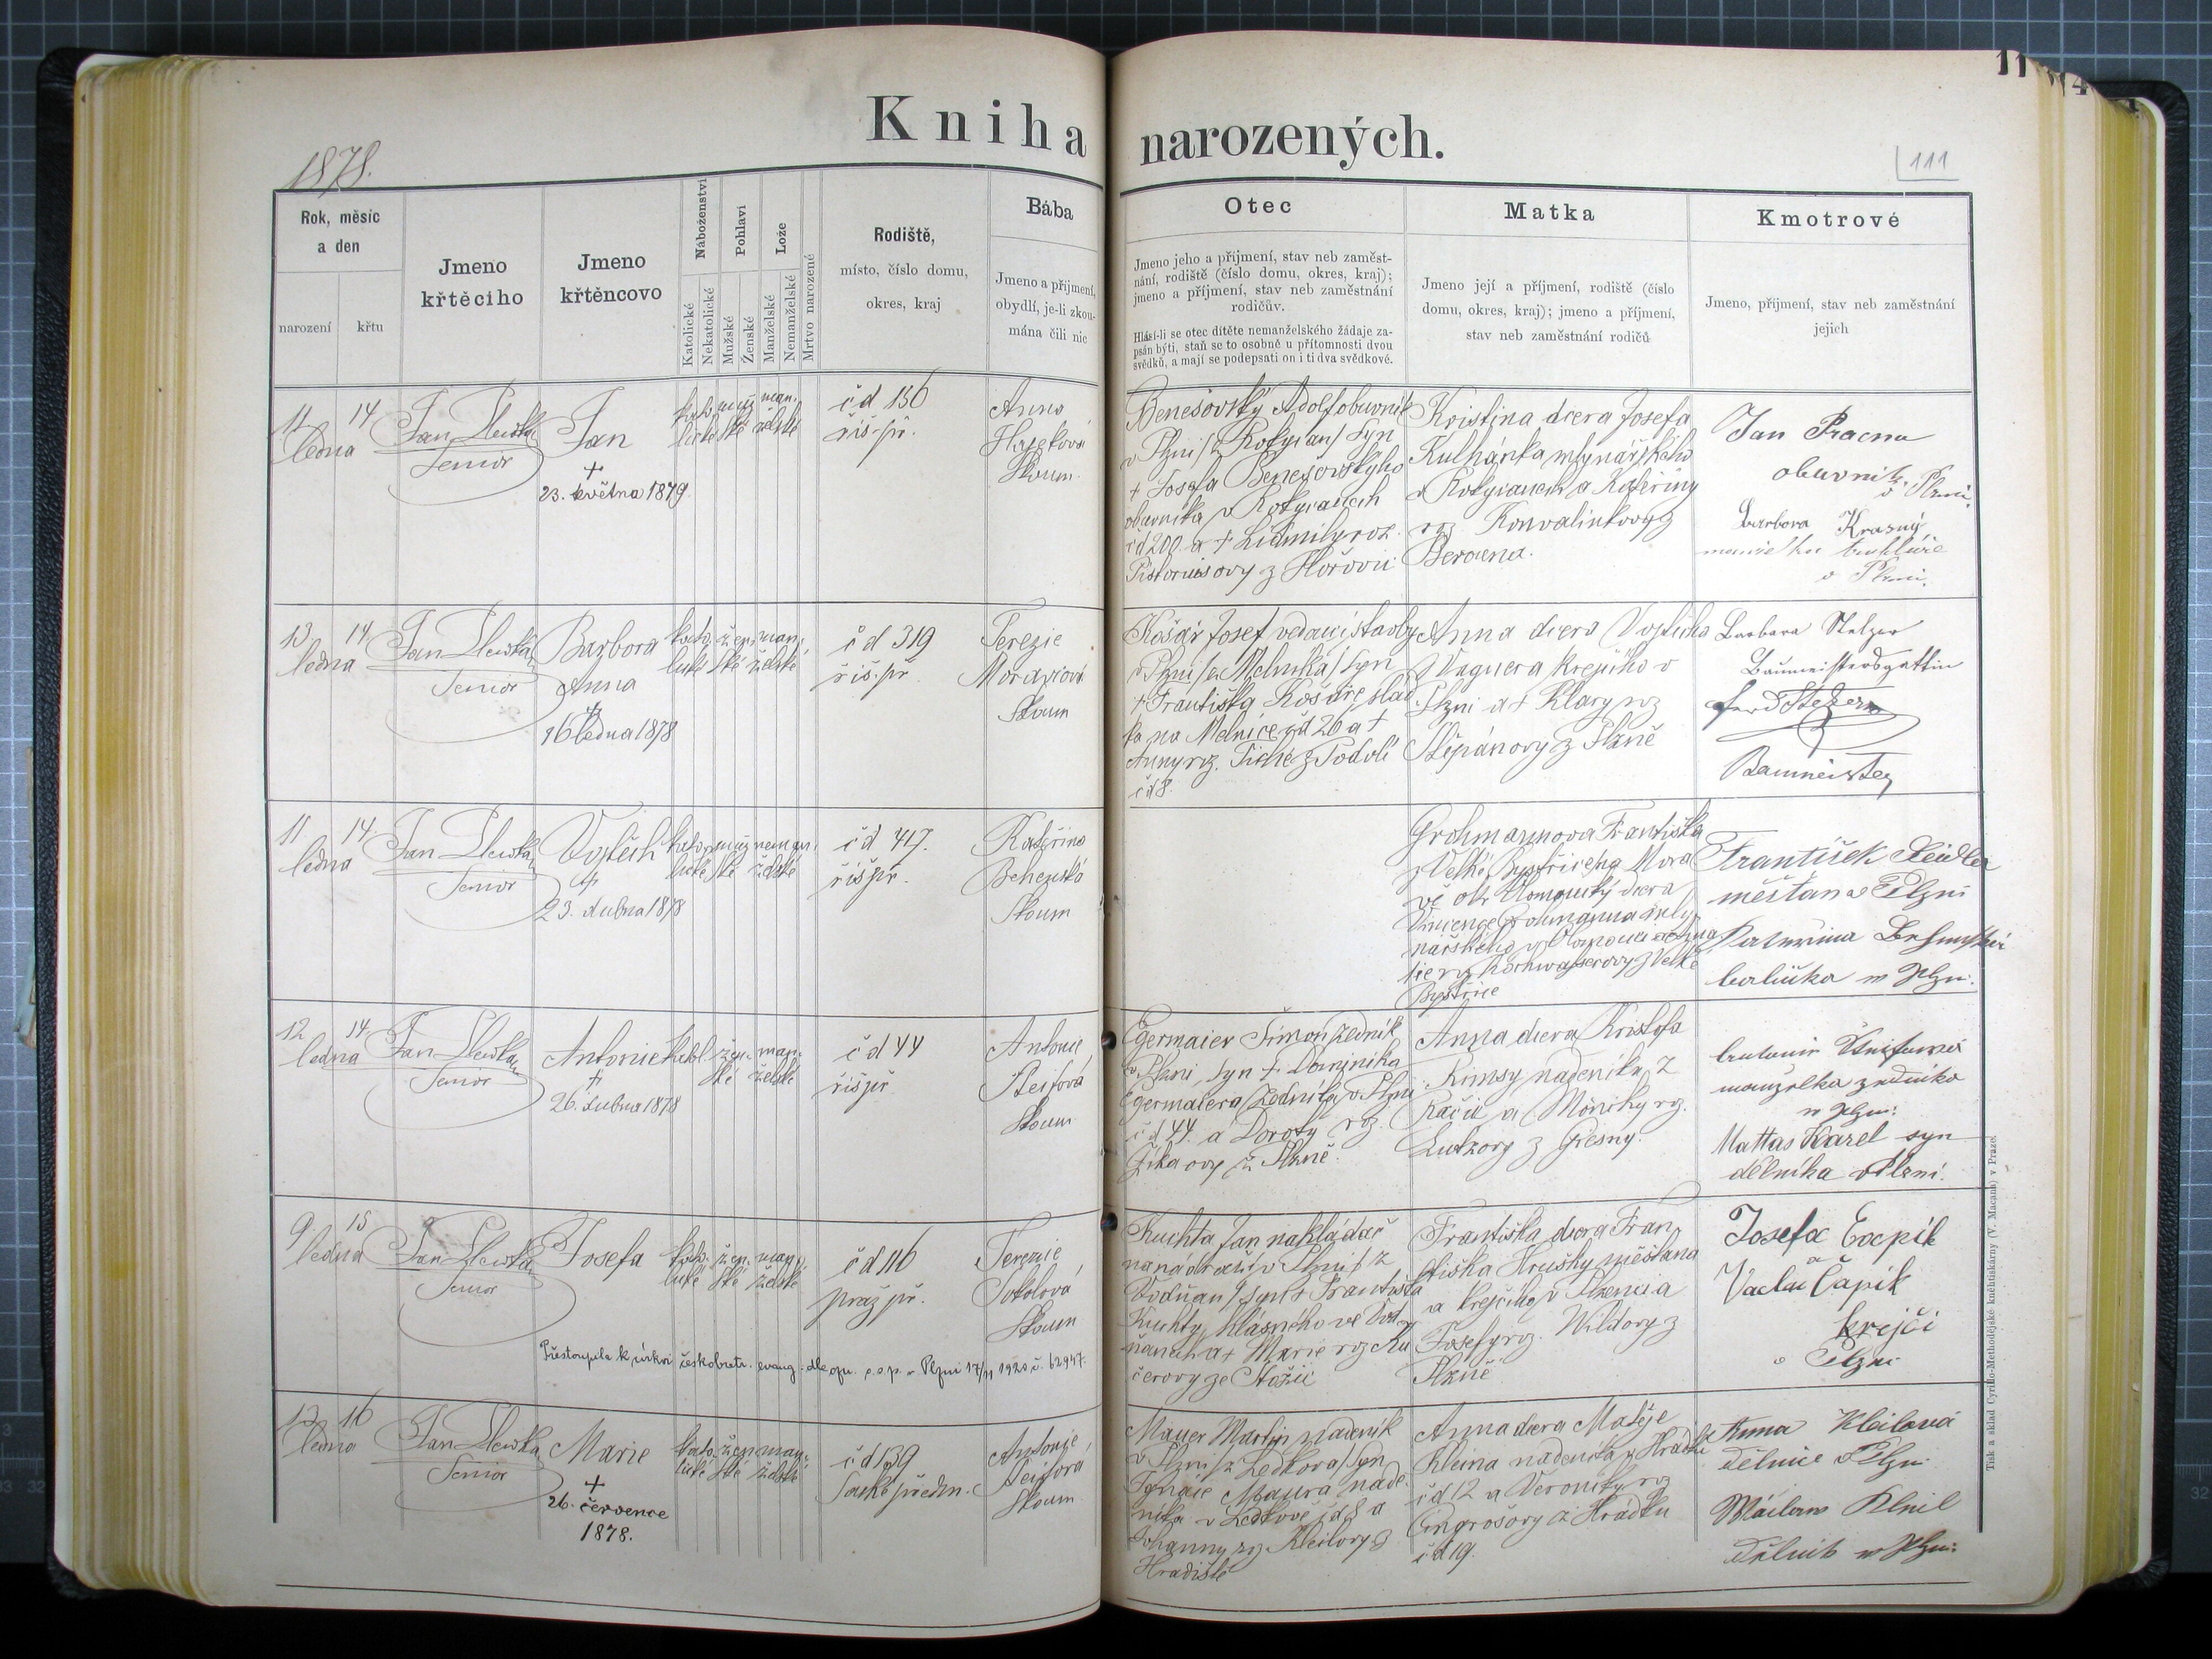 Kniha narozených.
1878.
11
111
Rok, měsíc
a den
narození
křtu
Jmeno
křtěcího
Jmeno
křtěncovo
Náboženství
Katolické
Nekatolické
Pohlaví
Mužské
Ženské
Lože
Manželské
Nemanželské
Mrtvo narozené
Rodiště,
místo, číslo domu,
okres, kraj
Bába
Jmeno a příjmení,
obydlí, je-li zkou-
mána čili nic
Otec
Jmeno jeho a příjmení, stav neb zaměst-
nání, rodiště (číslo domu, okres, kraj);
jmeno a příjmení, stav neb zaměstnání
rodičův.
Hlásí-li se otec dítěte nemanželského žádaje za-
psán býti, staň se to osobně u přítomnosti dvou
svědků, a mají se podepsati on i ti dva svědkové.
Matka
Jmeno její a příjmení, rodiště (číslo
domu, okres, kraj); jmeno a příjmení,
stav neb zaměstnání rodičů
Kmotrové
Jmeno, příjmení, stav neb zaměstnání
jejich
11 14
ledna
Jan
Senior
Jan
+
23. května 1879.
kato muž man.
lické ské želské
č d 156
řiš. př.
Anna
Hašková
zkoum.
Benešovský Adolf obuvník
v Plzni /z Rokycan/ syn
+ Josefa Benešovského
obuvníka v Rokycanech
čd 200 a + Lidmily roz.
Pistoriusovy z Hořovic
Kristina dcera Josefa
Kulhánka mlynářského
v Rokycanech a Kateřiny
roz Konvalinkovy z
Berouna.
Jan Pracna
obuvník
v Plzni.
Barbora Krasný
manželka truhláře
v Plzni.
13 14
ledna
Jan
Senior
Barbora
Anna
+
16 ledna 1878
kato. žen. man.
lické ské želské
č d 319
řiš. př.
Terezie
Moravcová
zkoum
Košář Josef vedoucí stavby
v Plzni /z Melníka/ syn
+ Františka Košáře, slád
ka na Melníce čd 26 a +
Anny roz. Tiché z Podolí
čd 8.
Anna dcera Vojtěcha
Wagnera krejčího v
Plzni a + Klary roz
Štěpánovy z Plzně
Barbara Stelzer
Baumeistersgattin
Ferd Stelzer
Baumeister
11 14
ledna
Jan
Senior
Vojtěch
+
23. dubna 1878
kato muž neman.
lické ské želské
č d 417.
řiš př.
Kateřina
Behenská
zkoum
Grohmannova Františka
z Velké Bystřice na Mora
vě okr Olomoucký dcera
Vincence Grohmanna mly
nářského v Olomouci a
lie roz z Velké
Bystřice
František
měšťan v Plzni
Katerina
babička w Plzni.
12 14
ledna
Jan
Senior
Antonie
+
26. dubna 1878
katol žen. man.
ské želské
č d 44
řiš př
Antonie
zkoum
Egermaier Šimon zedník
v Plzni, syn + Dominika
Egermaiera zedníka v Plzni
č d 44. a Doroty roz.
z Plzně.
Anna dcera Kristofa
Kimsy nádeníka z
a Moniky roz.
z
Antonie
manzelka zedníka
w Plzni.
Mattas Karel syn
dělníka v Plzni.
9. 15
ledna
Jan
Senior
Josefa
kato. žen. man.
lické ské želské
č d 116
praž př.
Terezie
Sokolová
zkoum
Přestoupila k církvi českobratr. evang. dle ozn. o. s. p. v Plzni 17/11 1920 č. 62947.
Kuchta Jan nakládač
na nádraží v Plzni /z
Vodňan/ syn + Františka
Kuchty hlásného ve Vod
ňanech a + Marie roz Ku
čerovy ze Stožic
Františka dcera Fran
tiška Hrušky měšťana
a krejčího v Plzni a
Josefy roz. Wildovy z
Plzně
Josefa Čapík
a
Vaclav Čapík
krejčí
v Plzni
13 16
ledna
Jan
Senior
Marie
+
26. července
1878.
kato. žen man
lické ské želské
č d 139
Saské předm.
Antonie
zkoum
Mauer Martin nadeník
v Plzni /z Ledkova/ syn
Ignáce Mauera nade
níka v Ledkově čd 8 a
Johanny roz Kleilovy z
Hradiště
Anna dcera Matěje
Kleina nadeníka v Hrádku
čd 12 a Veroniky roz
z Hrádku
č d 19.
Anna Kleilová
Dělnice v Plzni
Wáclaw Kleil
Dělnik w Plzni.
Tisk a sklad Cyrillo-Methodějské knihtiskárny (V. Macana) v Praze.